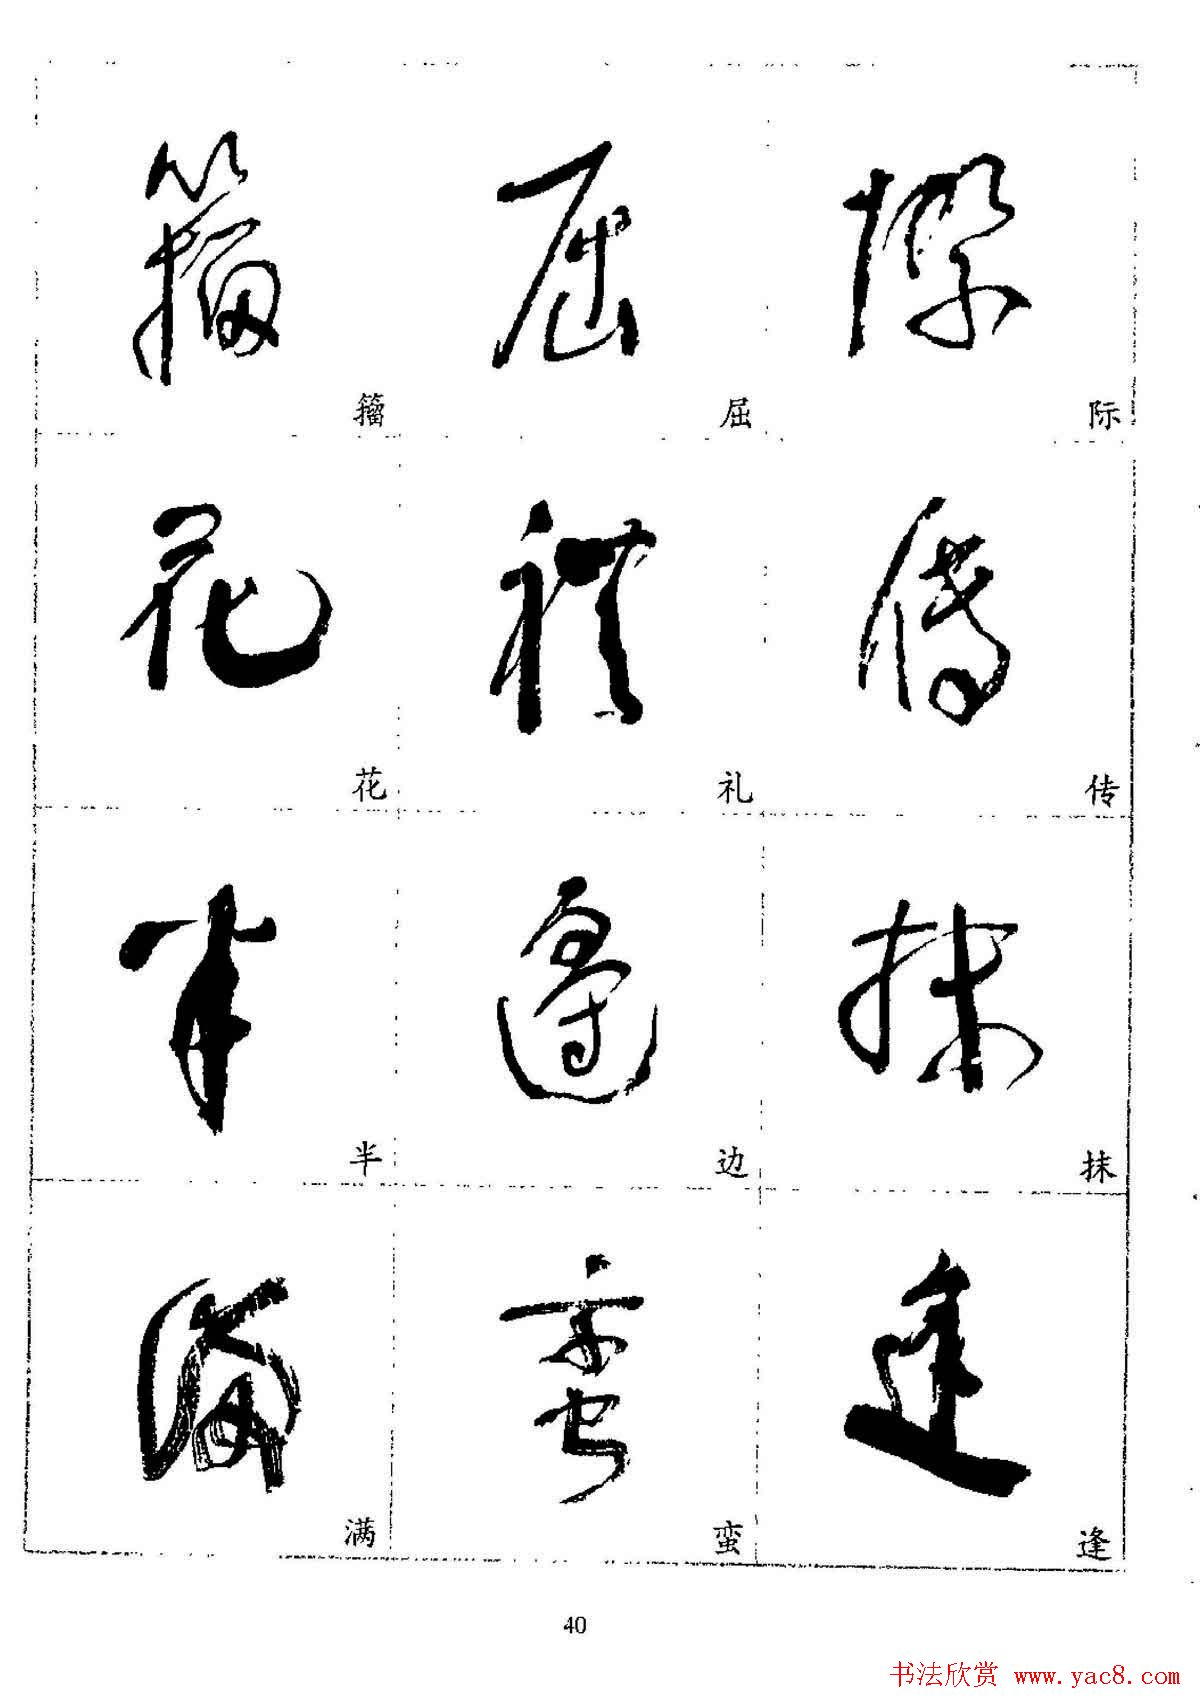 籀 屈 际
花 礼 传
半 边 抹
满 蛮 逢
40
书法欣赏 www.yac8.com